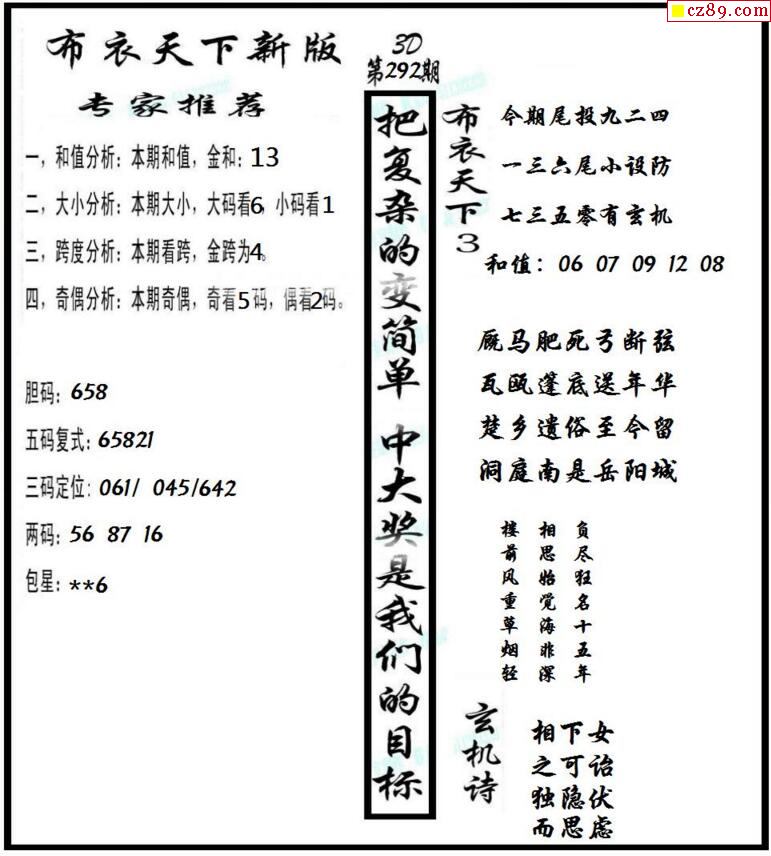 cz89.com
布衣天下新版
3D
第292期
专家推荐
一，和值分析：本期和值，金和：13
二，大小分析：本期大小，大码看6，小码看1
三，跨度分析：本期看跨，金跨为4。
四，奇偶分析：本期奇偶，奇看5码，偶看2码。
胆码：658
五码复式：65821
三码定位：061/ 045/642
两码：56 87 16
包星：**6
把复杂的变简单 中大奖是我们的目标
布衣天下3
今期尾投九二四
一三六尾小设防
七三五零有玄机
和值：06 07 09 12 08
厩马肥死弓断弦
瓦瓯蓬底送年华
楚乡遗俗至今留
洞庭南是岳阳城
负尽狂名十五年
相思始觉海非深
楼前风重草烟轻
玄机诗
女诒伏虑
下可隐思
相之独而